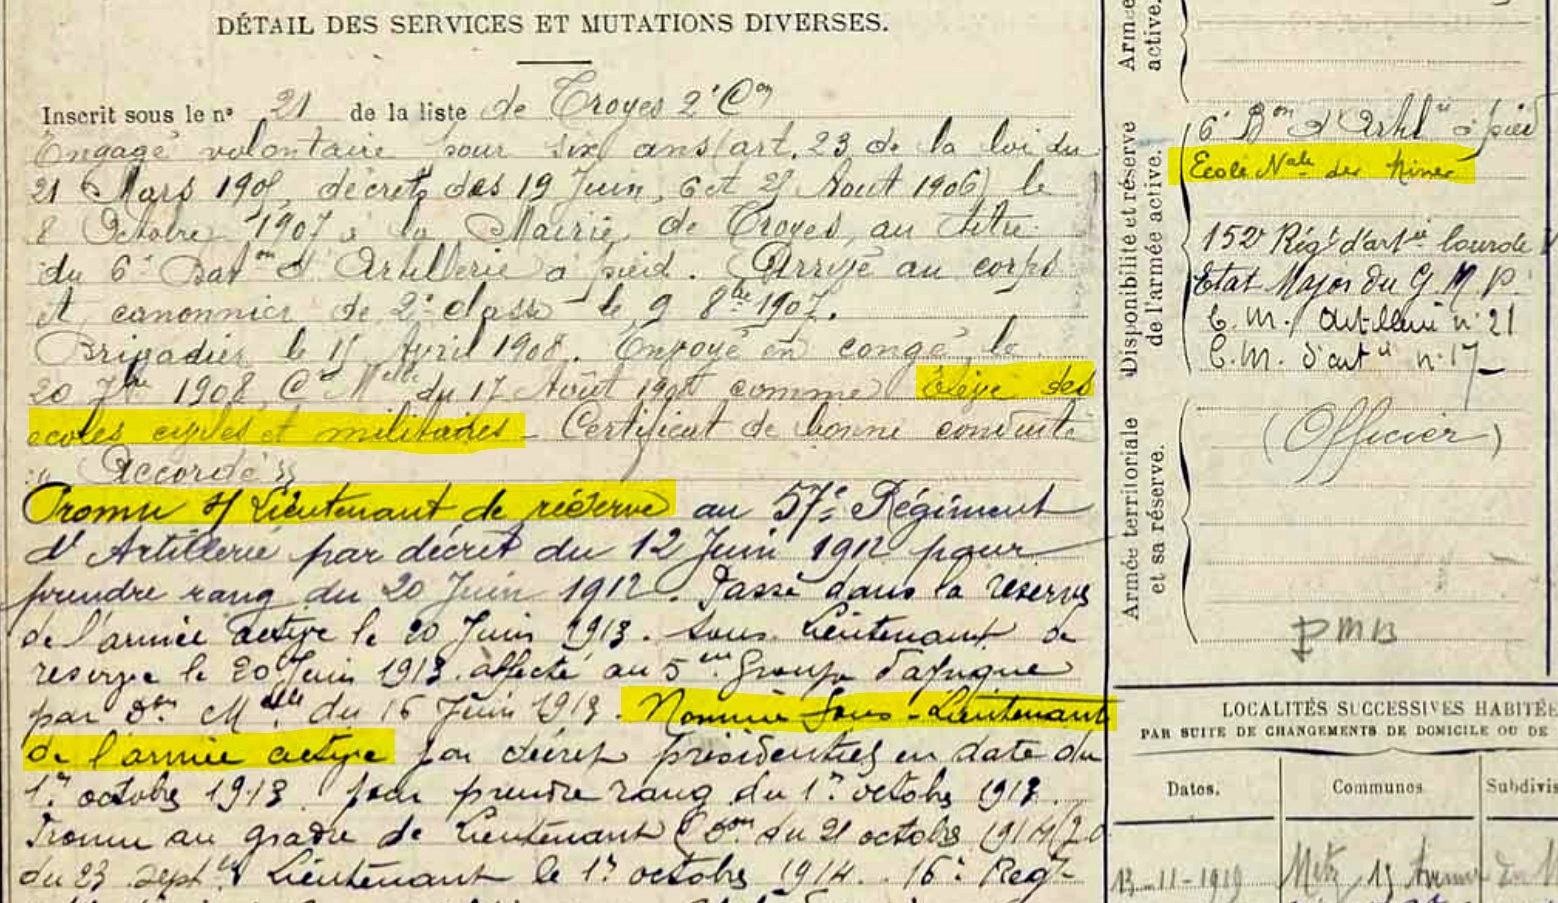 DÉTAIL DES SERVICES ET MUTATIONS DIVERSES.
Inscrit sous le n° 21 de la liste de Troyes 2e Con
Engagé volontaire pour six ans (art. 23 de la loi du
21 Mars 1905, décrets des 19 Juin, 6 et 25 Août 1906) le
8 Octobre 1907 à la Mairie de Troyes, au titre
du 6e Baton d'Artillerie à pied. Arrivé au corps
et canonnier de 2e classe le 9 8bre 1907.
Brigadier le 15 Avril 1908. Envoyé en congé le
20 7bre 1908 Ce Melle du 17 Août 1908 comme élève des
écoles civiles et militaires - Certificat de bonne conduite
"Accordé"
Promu s/Lieutenant de réserve au 57e Régiment
d'Artillerie par décret du 12 Juin 1912 pour
prendre rang du 20 Juin 1912. Passé dans la réserve
de l'armée active le 20 Juin 1913. Sous Lieutenant de
reserve le 20 Juin 1913 affecté au 5me Groupe d'afrique
par Don Mlle du 16 Juin 1913. Nommé Sous-Lieutenant
de l'armée active par décret présidentiel en date du
1er octobre 1913 pour prendre rang du 1er octobre 1913.
Promu au grade de Lieutenant (Don du 21 octobre 1914 (J.O
du 23 septbre Lieutenant le 1er octobre 1914. 16e Regt
Armée
active.
Disponibilité et réserve
de l'armée active.
6e Bon d'Artille à pied
Ecole Nale des Mines
152e Régt d'artie lourde
Etat Major du G M P.
C. M. Artillerie n° 21
C. M. d'artie n° 17
Armée territoriale
et sa réserve.
(Officier)
PMB
LOCALITÉS SUCCESSIVES HABITÉE
PAR SUITE DE CHANGEMENTS DE DOMICILE OU DE
Dates. Communes Subdivis
13-11-1919 Metz, 15